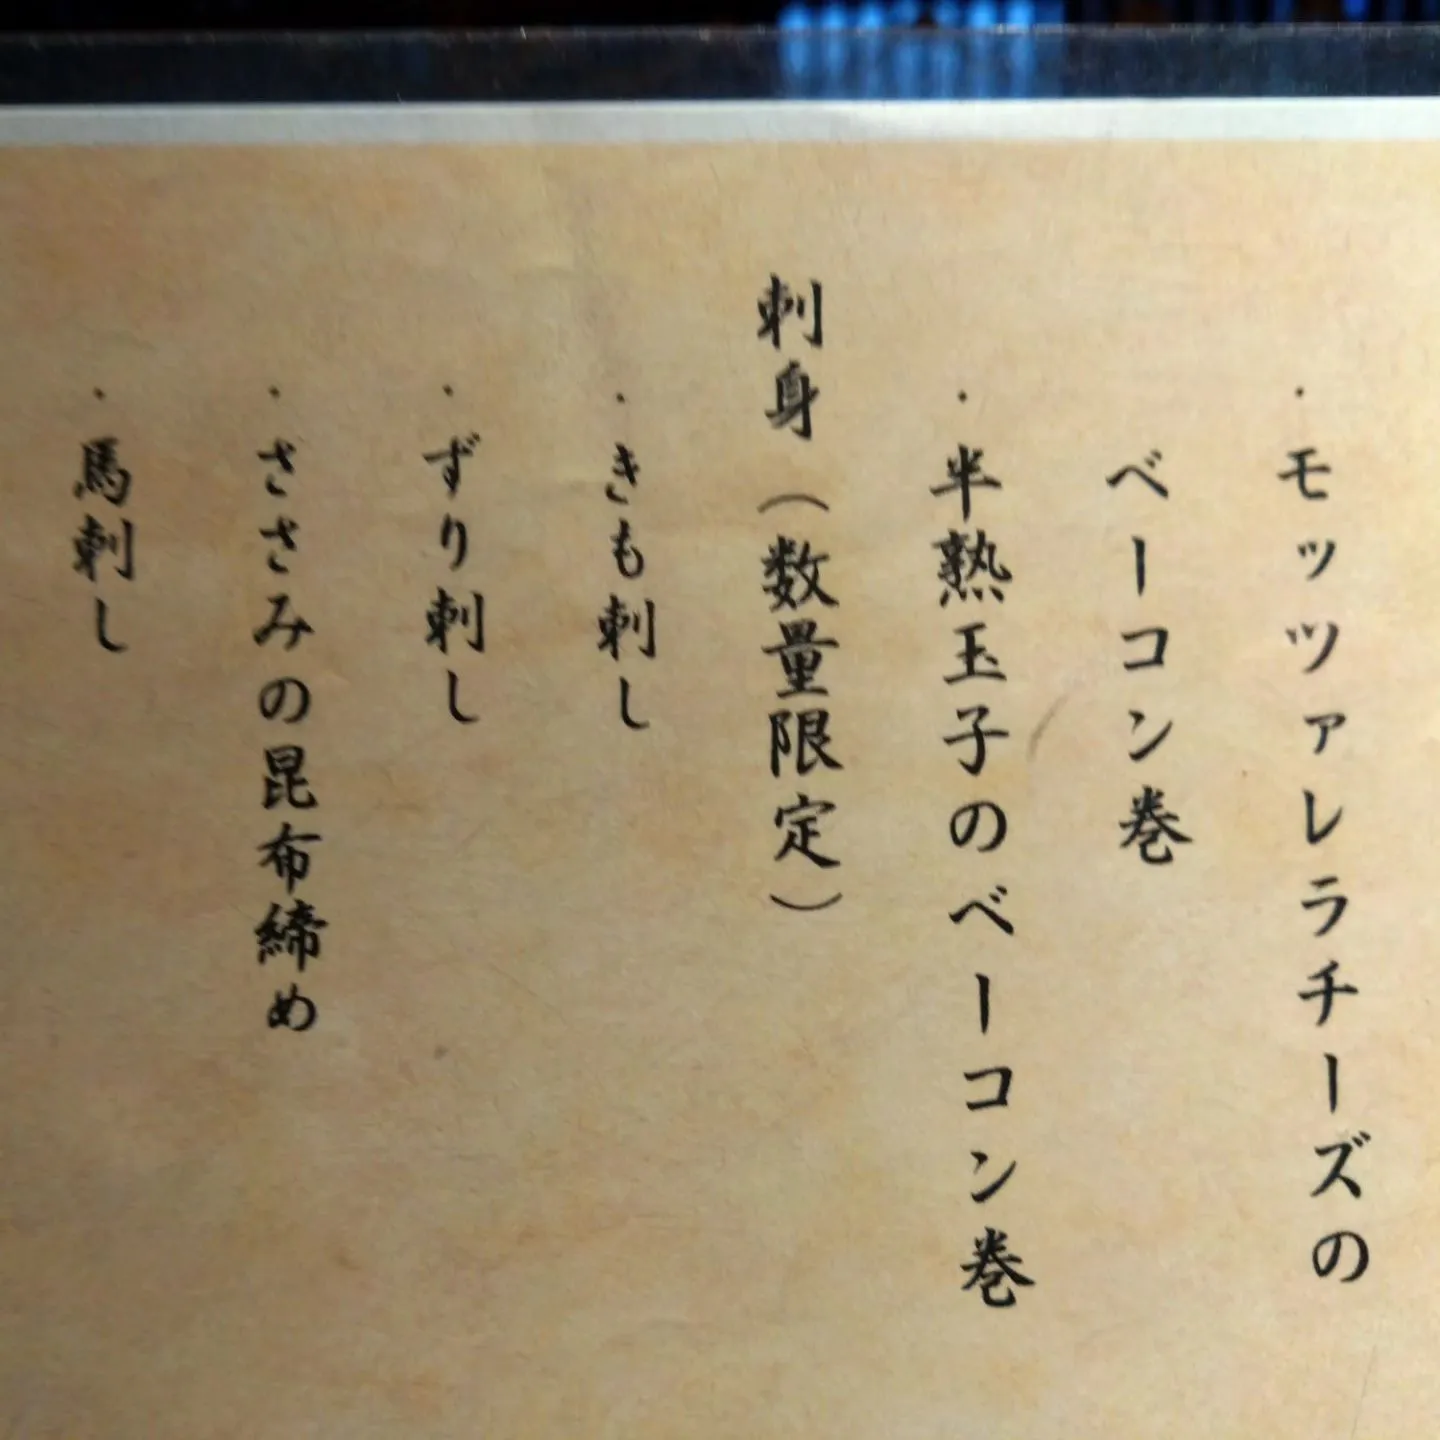 ・モッツァレラチーズの
ベーコン巻
・半熟玉子のベーコン巻
刺身（数量限定）
・きも刺し
・ずり刺し
・ささみの昆布締め
・馬刺し